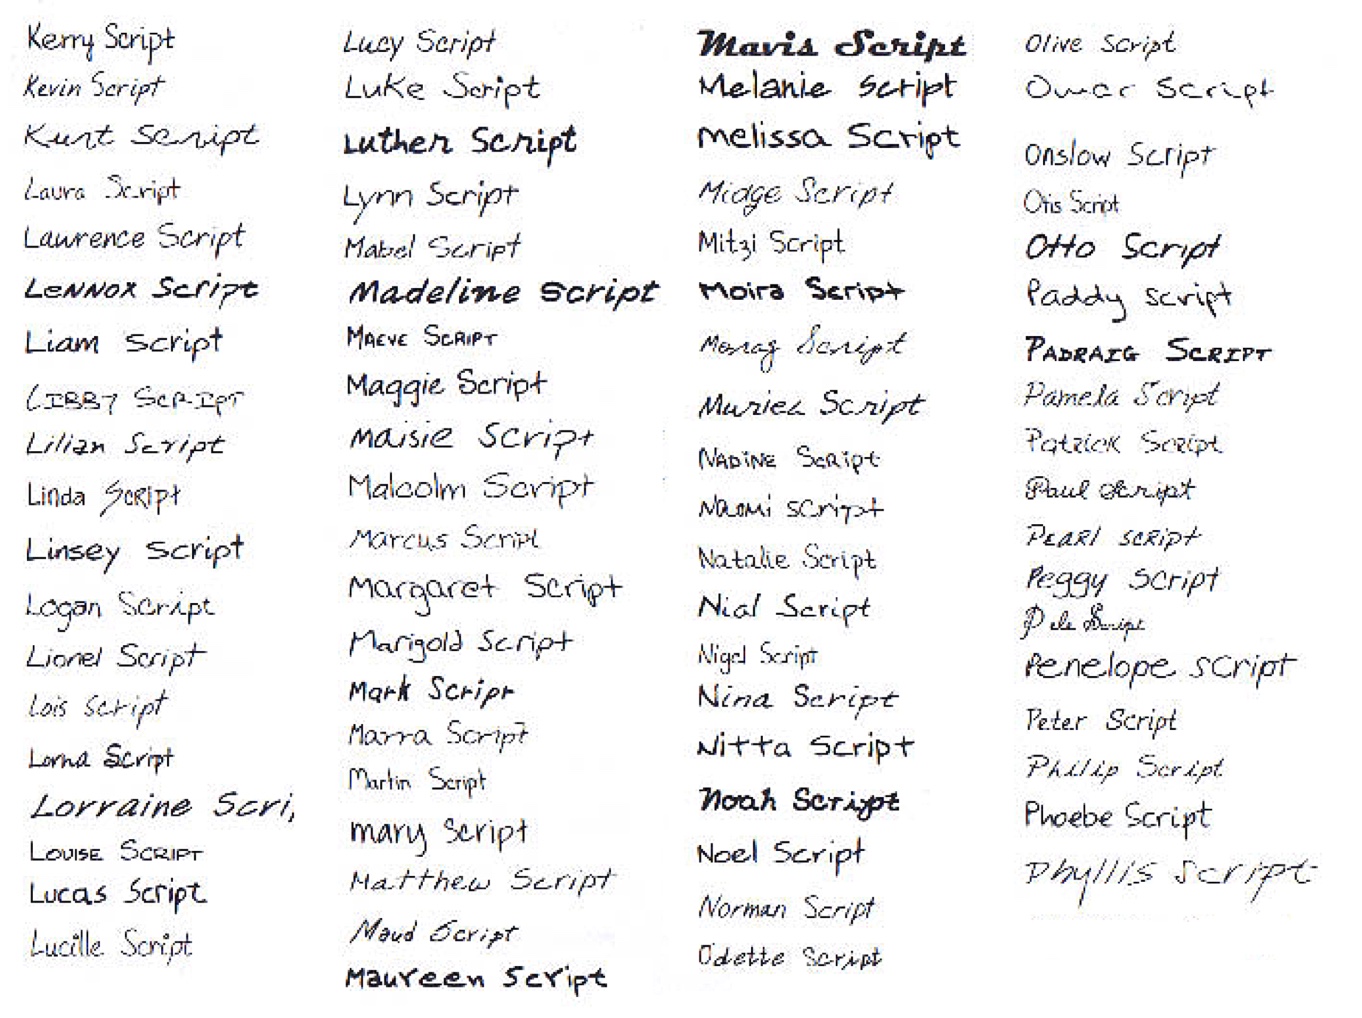 Kerry Script
Kevin Script
Kurt Script
Laura Script
Lawrence Script
Lennox Script
Liam Script
Libby Script
Lilian Script
Linda Script
Linsey Script
Logan Script
Lionel Script
Lois Script
Lorna Script
Lorraine Scri
Louise Script
Lucas Script
Lucille Script
Lucy Script
Luke Script
Luther Script
Lynn Script
Mabel Script
Madeline Script
Maeve Script
Maggie Script
Maisie Script
Malcolm Script
Marcus Script
Margaret Script
Marigold Script
Mark Script
Marra Script
Martin Script
mary Script
Matthew Script
Maud Script
Maureen Script
Mavis Script
Melanie Script
Melissa Script
Midge Script
Mitzi Script
Moira Script
Morag Script
Muriel Script
Nadine Script
Naomi Script
Natalie Script
Nial Script
Nigel Script
Nina Script
Nitta Script
Noah Script
Noel Script
Norman Script
Odette Script
Olive Script
Omar Script
Onslow Script
Otis Script
Otto Script
Paddy Script
Padraig Script
Pamela Script
Patrick Script
Paul Script
Pearl Script
Peggy Script
Script
Penelope Script
Peter Script
Philip Script
Phoebe Script
Phyllis Script